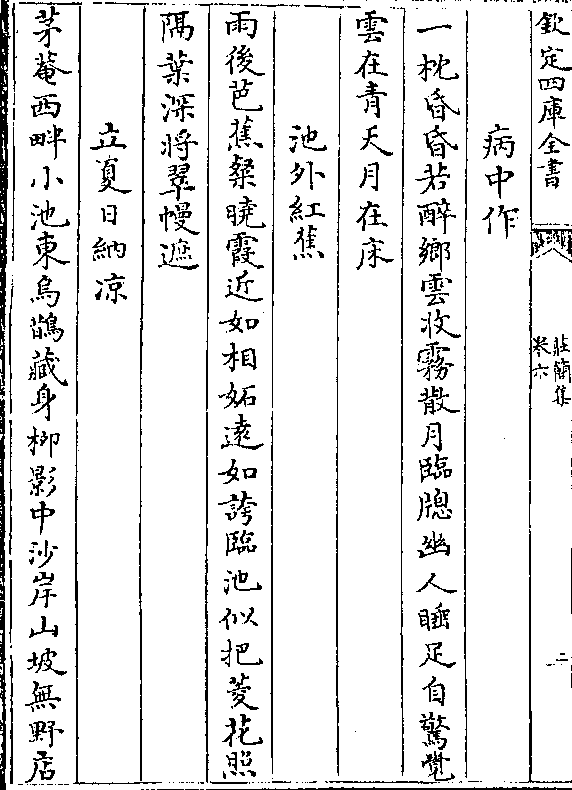 欽定四庫全書
莊簡集
卷六
二
病中作
一枕昏昏若醉鄉雲收霧散月臨牕幽人睡足自驚覺
雲在青天月在床
池外紅蕉
雨後芭蕉粲曉霞近如相妬遠如誇臨池似把菱花照
隔葉深將翠幔遮
立夏日納凉
茅菴西畔小池東烏鵲藏身栁影中沙岸山坡無野店